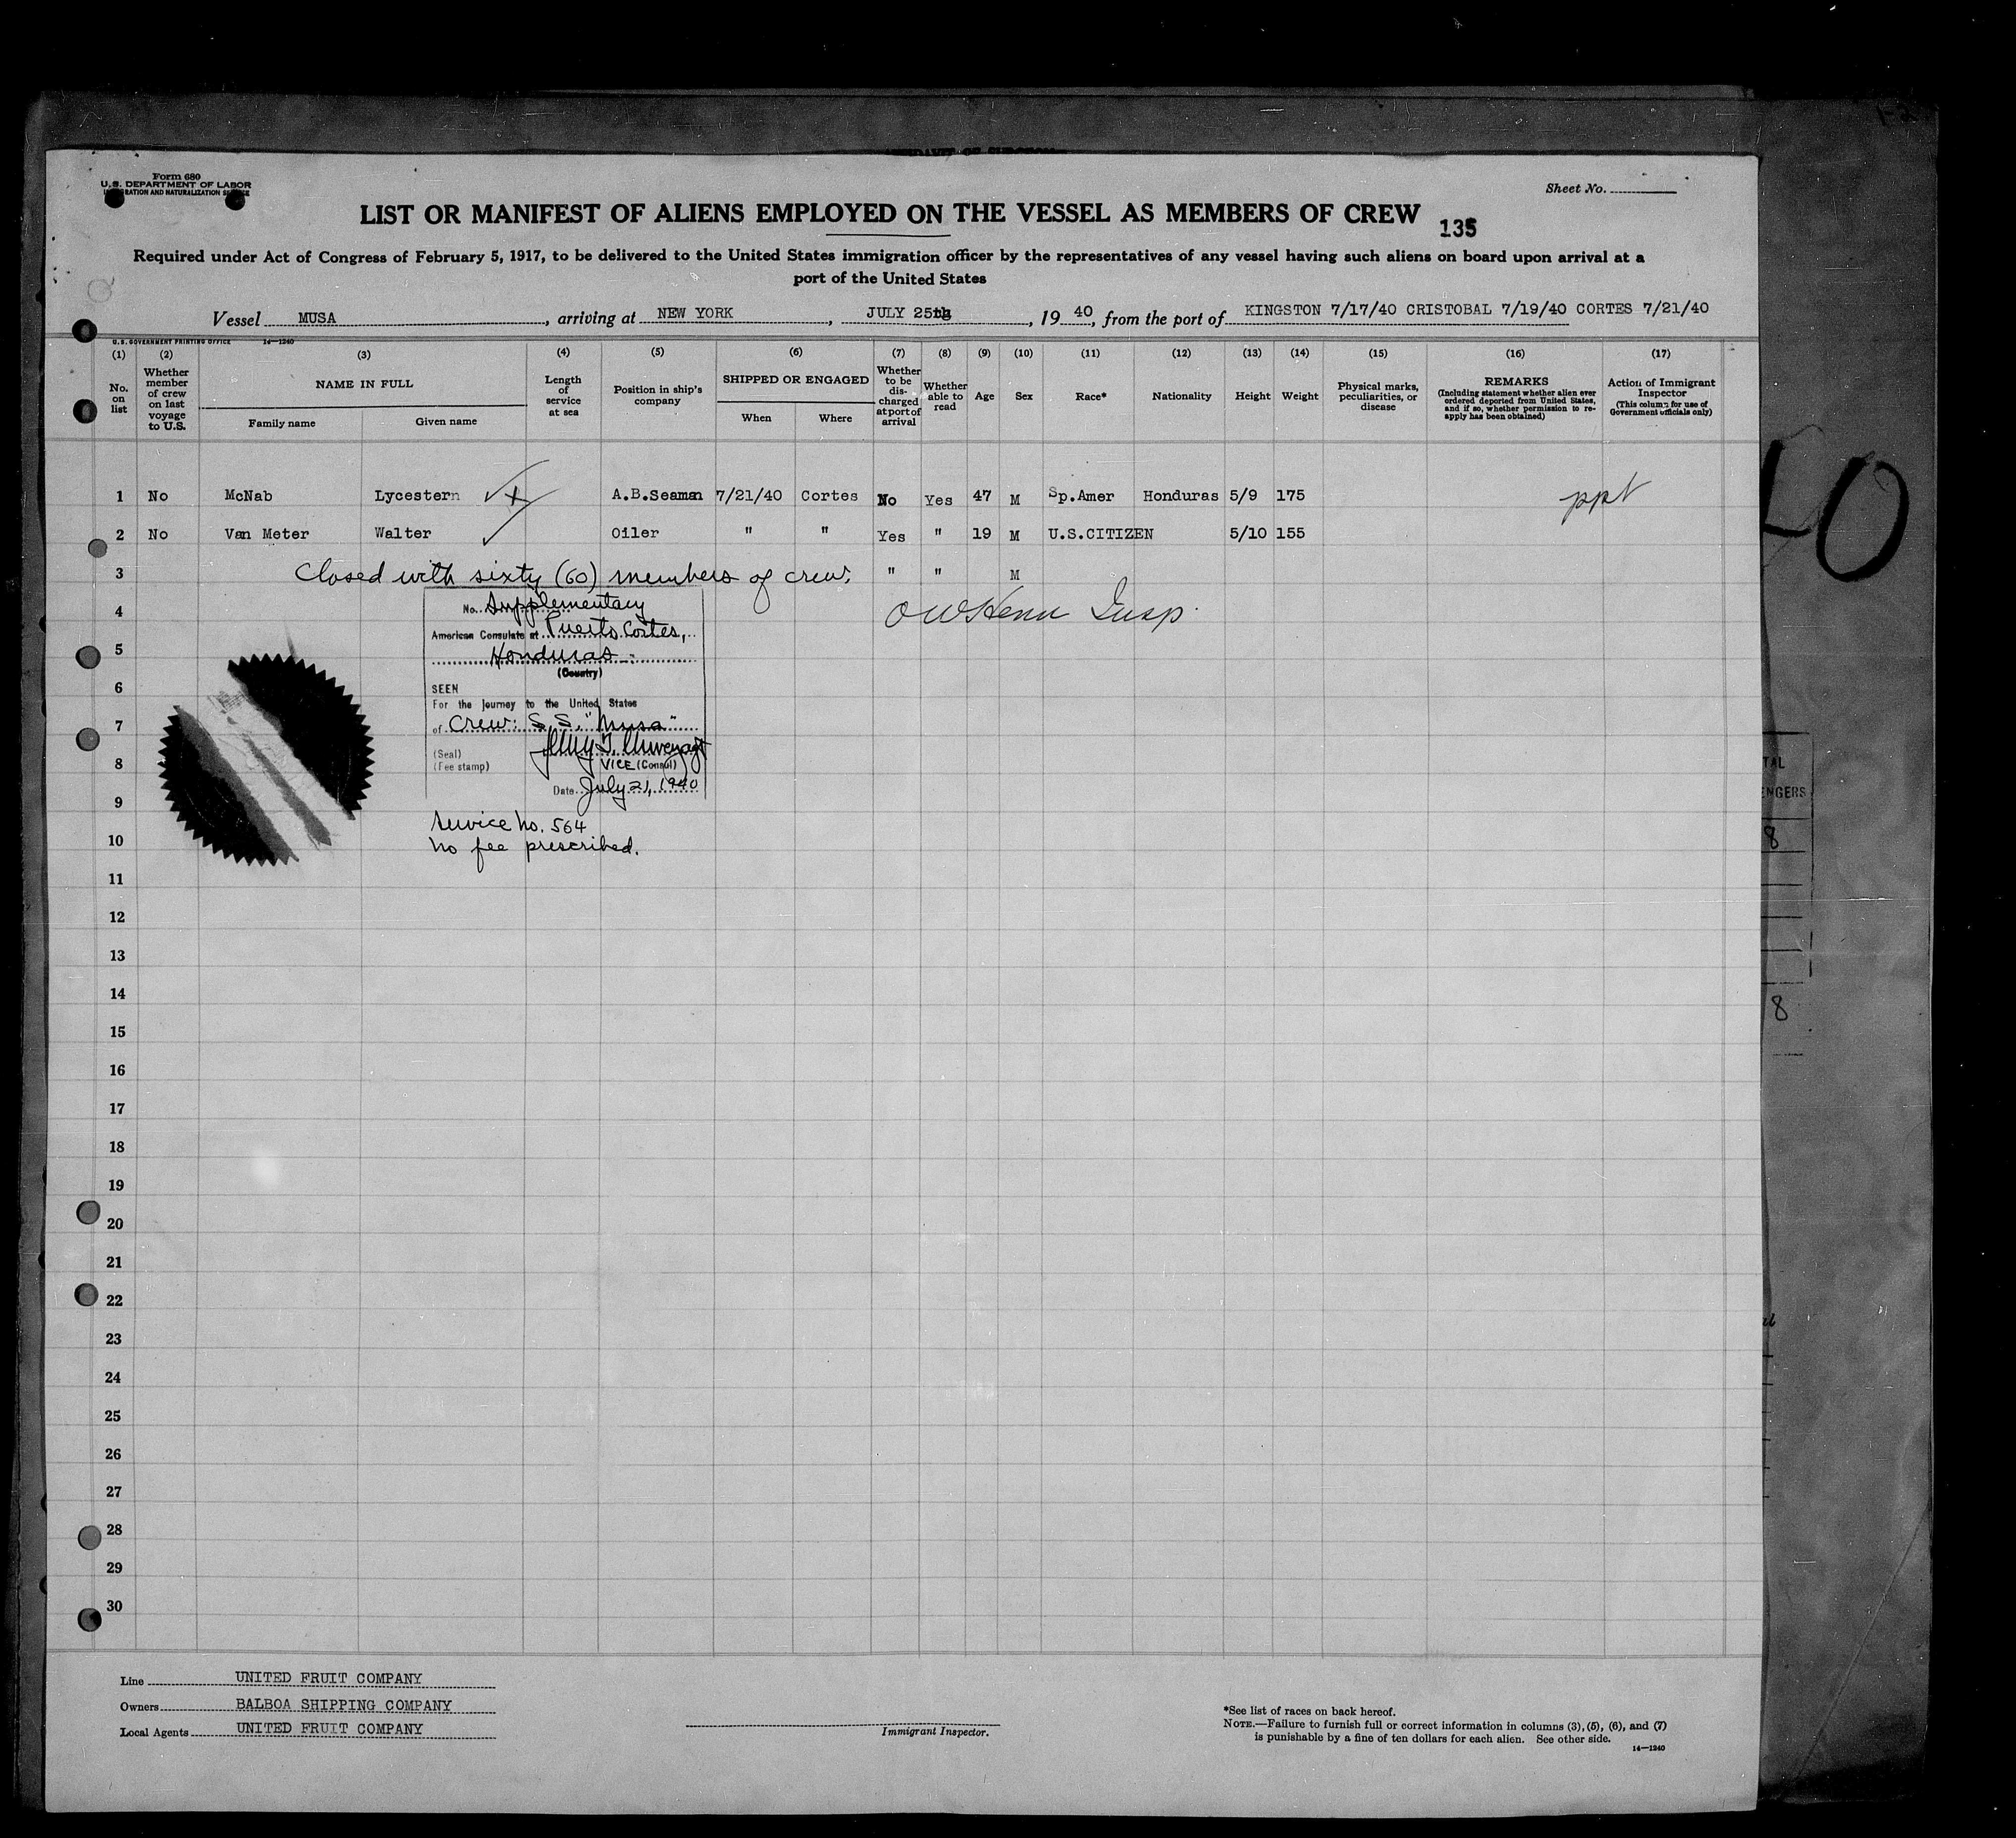 Form 680
U.S. DEPARTMENT OF LABOR
Sheet No.
LIST OR MANIFEST OF ALIENS EMPLOYED ON THE VESSEL AS MEMBERS OF CREW
135
Required under Act of Congress of February 5, 1917, to be delivered to the United States immigration officer by the representatives of any vessel having such aliens on board upon arrival at a
port of the United States
Vessel MUSA, arriving at NEW YORK, JULY 25th, 19 40, from the port of KINGSTON 7/17/40 CRISTOBAL 7/19/40 CORTES 7/21/40
U.S. GOVERNMENT PRINTING OFFICE 14—1240
(1) (2) (3) (4) (5) (6) (7) (8) (9) (10) (11) (12) (13) (14) (15) (16) (17)
No. on list
Whether member of crew on last voyage to U.S.
NAME IN FULL
Family name Given name
Length of service at sea
Position in ship's company
SHIPPED OR ENGAGED
When Where
Whether to be discharged at port of arrival
Whether able to read
Age
Sex
Race*
Nationality
Height
Weight
Physical marks, peculiarities, or disease
REMARKS
(Including statement whether alien ever ordered deported from United States, and if so, whether permission to reapply has been obtained)
Action of Immigrant Inspector
(This column for use of Government officials only)
1 No McNab Lycestern A.B.Seaman 7/21/40 Cortes No Yes 47 M Sp.Amer Honduras 5/9 175 ppt
2 No Van Meter Walter Oiler " " Yes " 19 M U.S.CITIZEN 5/10 155
3 Closed with sixty (60) members of crew. " " M
4
No. Supplementary
American Consulate at Puerto Cortes,
Honduras
(Country)
SEEN
For the journey to the United States
of Crew: S.S. "Musa"
(Seal)
(Fee stamp)
VICE (Consul)
Date July 21, 1940
Service No. 564
No fee prescribed.
Insp.
5
6
7
8
9
10
11
12
13
14
15
16
17
18
19
20
21
22
23
24
25
26
27
28
29
30
Line UNITED FRUIT COMPANY
Owners BALBOA SHIPPING COMPANY
Local Agents UNITED FRUIT COMPANY
Immigrant Inspector.
*See list of races on back hereof.
NOTE.—Failure to furnish full or correct information in columns (3), (5), (6), and (7)
is punishable by a fine of ten dollars for each alien. See other side.
14—1240
8
8